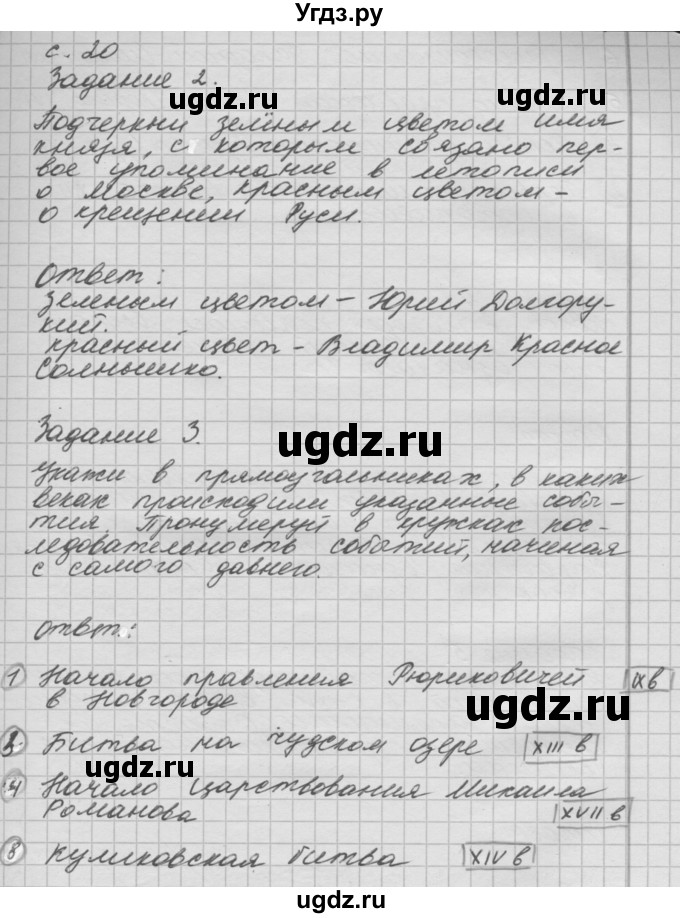 Угдз.ру
с. 20
Задание 2.
Подчеркни зелёным цветом имя
князя, с которым связано пер-
вое упоминание в летописи
о Москве, красным цветом –
о крещении Руси.
Ответ:
Зеленым цветом – Юрий Долгору-
кий.
красный цвет – Владимир Красное
Солнышко.
Задание 3.
Укажи в прямоугольниках, в каких
веках происходили указанные собы-
тия. Пронумеруй в кружках пос-
ледовательность событий, начиная
с самого давнего.
Ответ:
1 Начало правления Рюриковичей IX в
в Новгороде
Битва на Чудском озере XIII в
4 Начало царствования Михаила
Романова XVII в
8 Куликовская битва XIV в
ugdz.ru
ugdz.ru
ugdz.ru
ugdz.ru
ugdz.ru
ugdz.ru
ugdz.ru
ugdz.ru